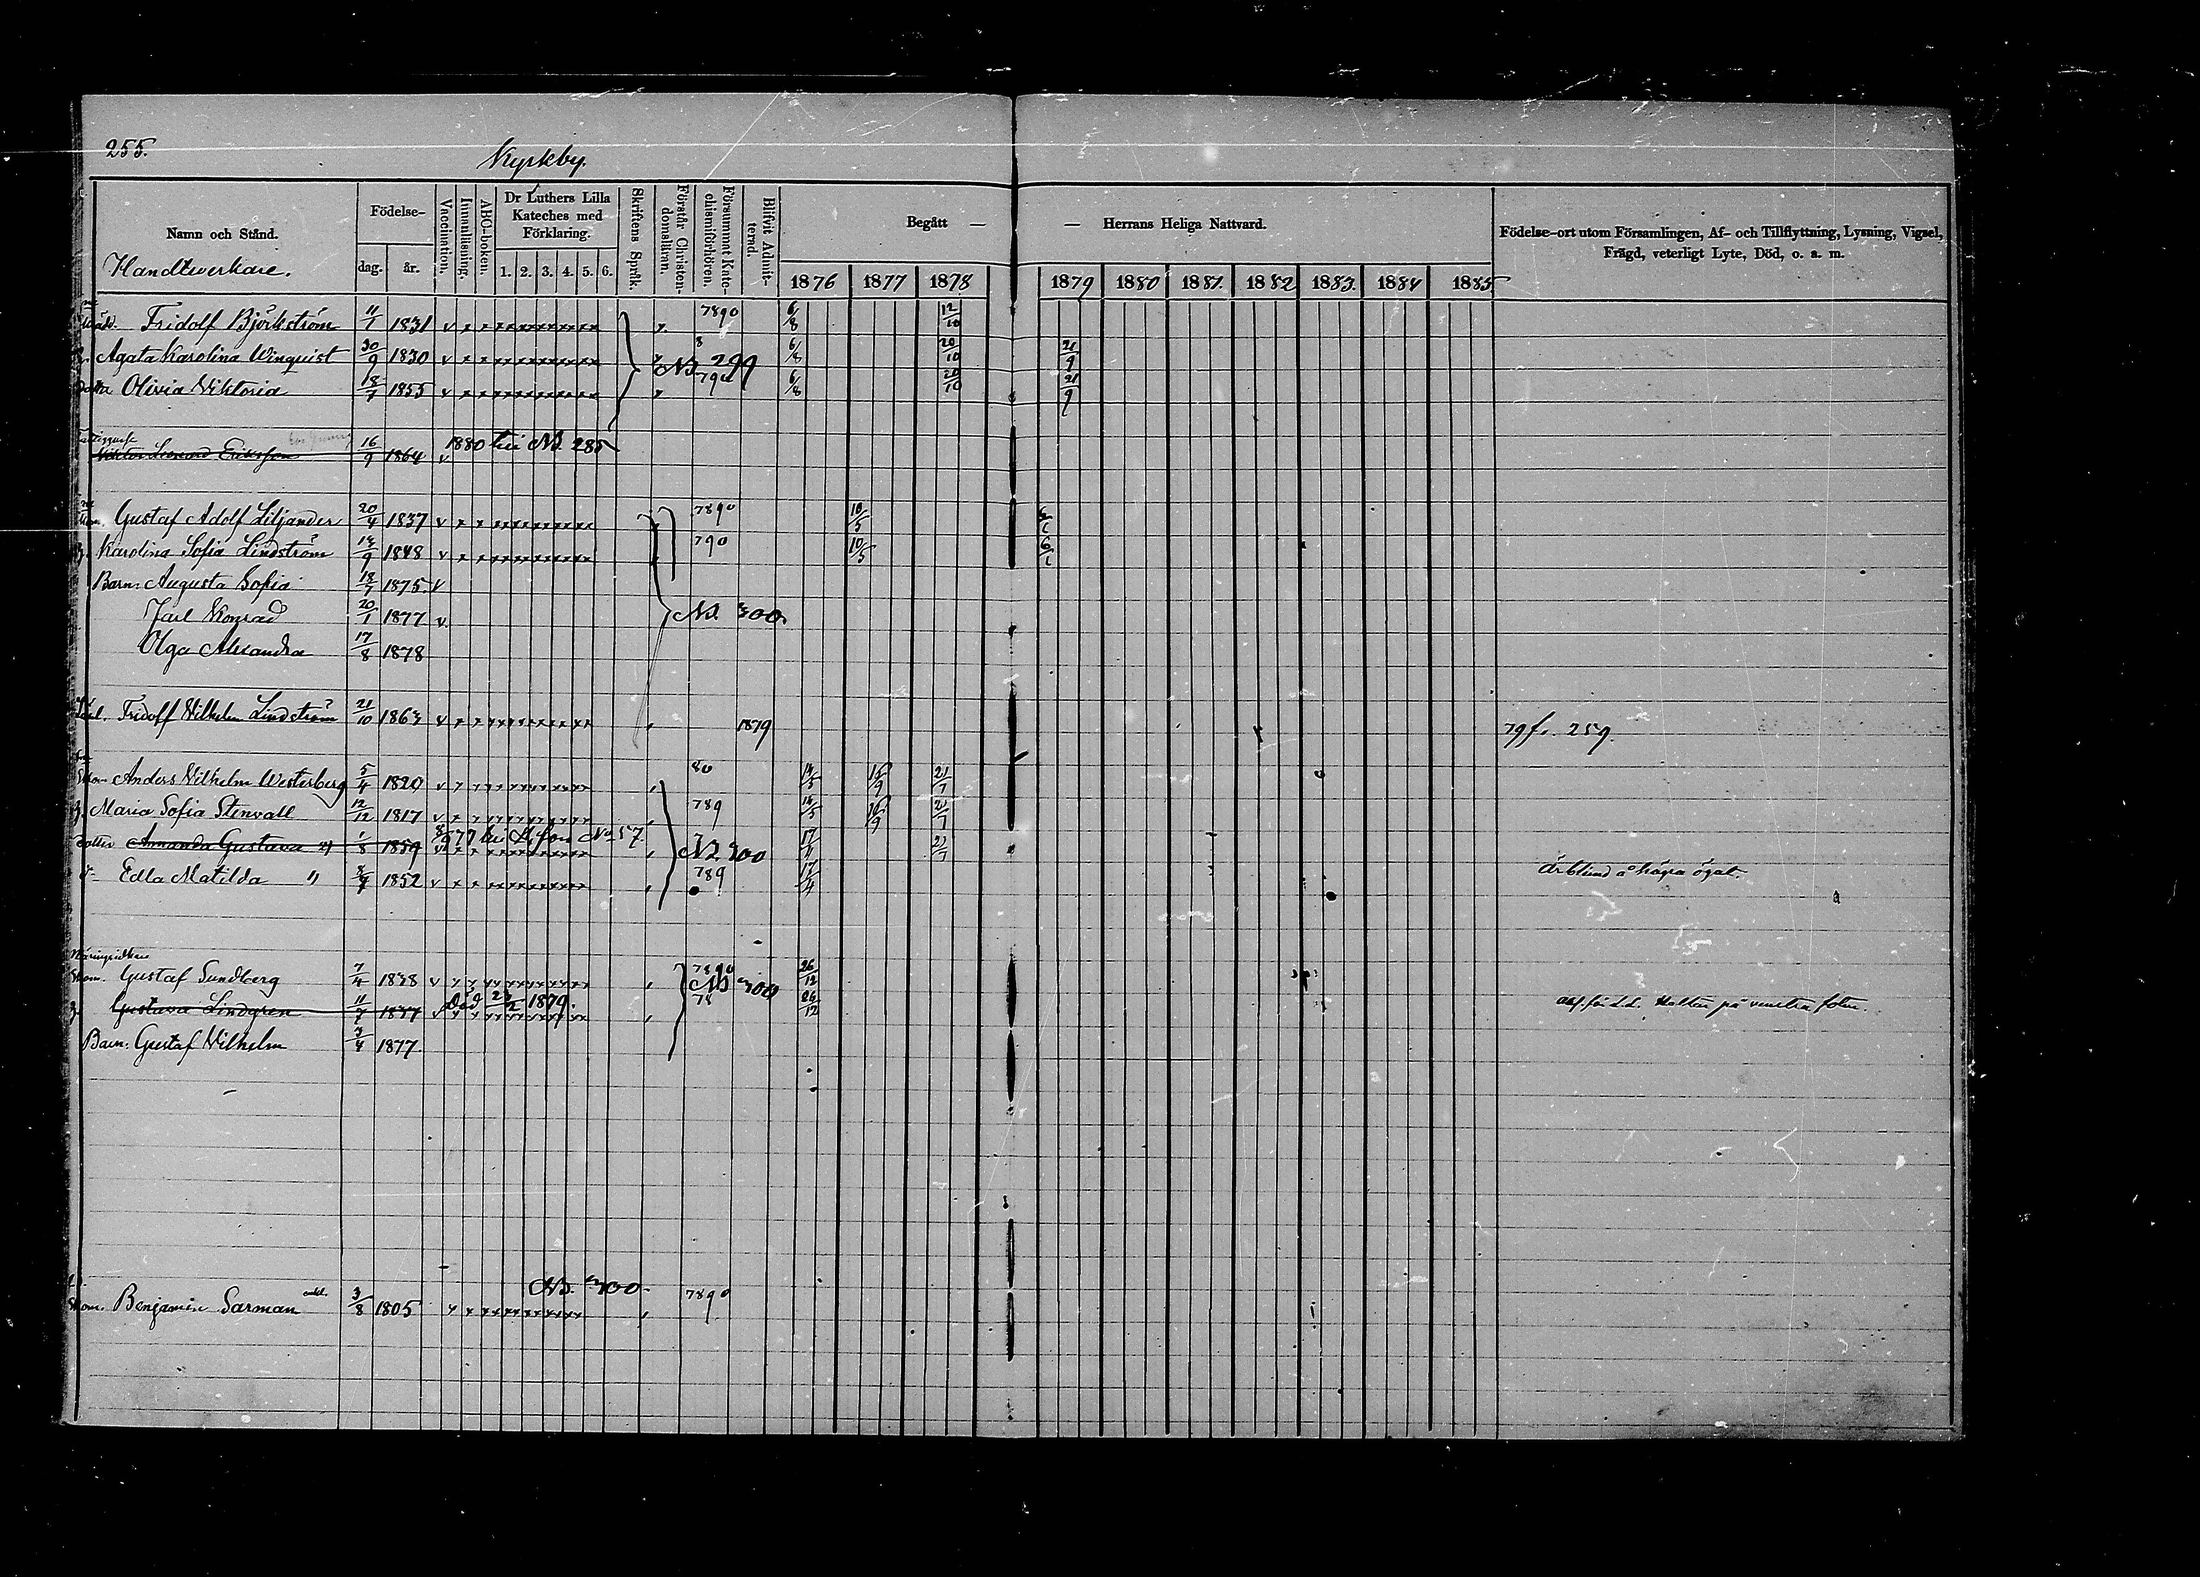 255.
Kyrkby.
Namn och Stånd.
Handtverkare.
Födelse-
dag. år.
Vaccination.
Innanläsning.
ABC-boken.
Dr Luthers Lilla
Kateches med
Förklaring.
1. 2. 3. 4. 5. 6.
Skriftens Språk.
Förstår Christen-
domsläran.
Försummat Kate-
chismiförhören.
Blifvit Admit-
terad.
Begått —
— Herrans Heliga Nattvard.
1876 1877 1878 1879 1880 1881 1882 1883 1884 1885
Födelse-ort utom Församlingen, Af- och Tillflyttning, Lysning, Vigsel,
Frägd, veterligt Lyte, Död, o. s. m.
Fridolf Björkström 11/1 1831 v 7890 6/8 12/10
Agata Karolina Winquist 30/9 1830 v 8 6/8 20/10 21/9
N. 299
Olivia Viktoria 18/7 1855 v 790 6/8 20/10 21/9
Viktor Leonard Eriksson 16/9 1864 v 1880 till N. 285
Gustaf Adolf Liljander 20/4 1837 v 7890 10/5
Karolina Sofia Lindström 14/9 1848 v 790 10/5
Barn: Augusta Sofia 18/7 1875. v
Karl Konrad 20/1 1877 v. N. 300.
Olga Alexandra 17/8 1878
Fridolf Vilhelm Lindström 21/10 1863 v 1879 79 fr. 259.
Skom. Anders Vilhelm Westerberg 5/4 1820 v 80 14/5 15/9 21/7
Maria Sofia Stenvall 12/12 1817 v 789 14/5 21/7
Dotter Amanda Gustava 1/8 1859 77 till N:o 57. N. 300 21/7
Edla Matilda " 1852 v 789 17/4 Är blind å högra ögat.
Skom. Gustaf Sundberg 7/4 1838 v 7890 26/12
N. 300
Gustava Lindgren 11/7 1837 v Död 23/2 1879. 78 26/12 Haltar på venstra foten.
Barn: Gustaf Vilhelm 3/4 1877.
N. 300.
Skom. Benjamin Sarman enkl. 3/8 1805 7890